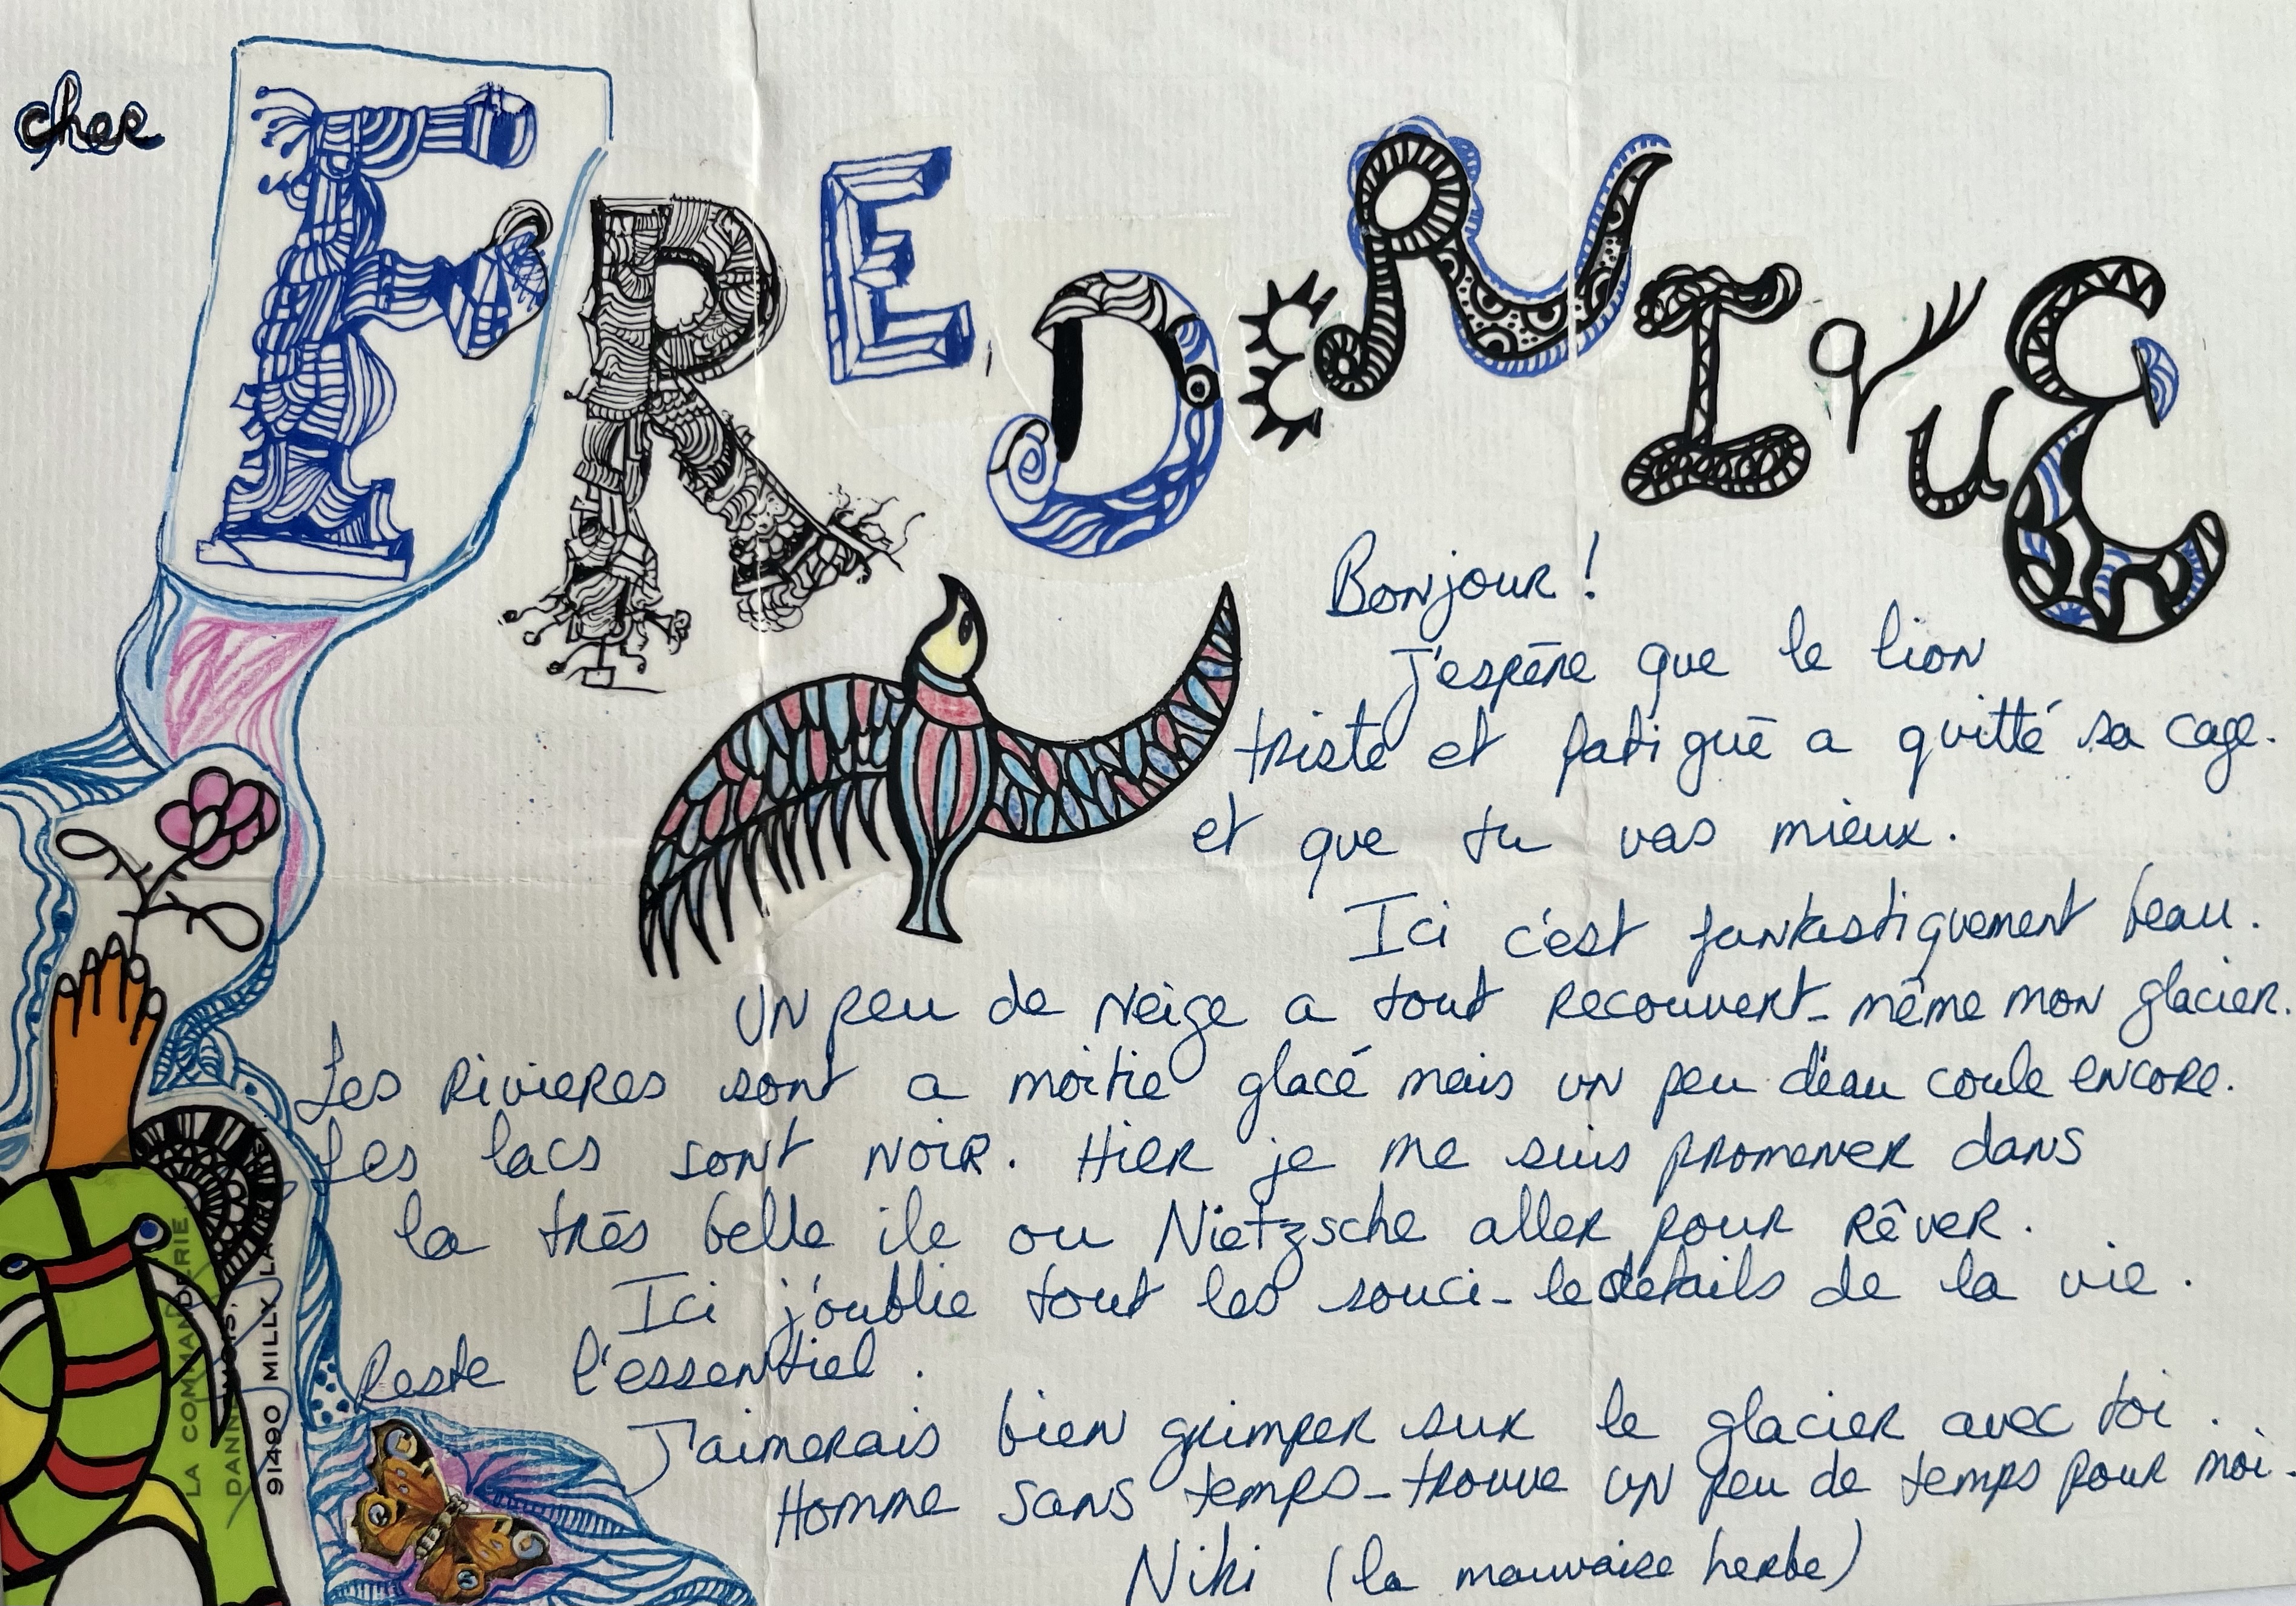 cher FREDERIQUE
Bonjour !
J'espére que le lion
triste et fatigué a quitté sa cage.
et que tu vas mieux.
Ici c'est fantastiquement beau.
UN peu de neige a tout recouvert - même mon glacier.
Les Rivieres sont a moitie glacé mais un peu d'eau coule encore.
Les lacs sont noir. Hier je me suis promener dans
la trés belle ile ou Nietzsche aller pour rêver.
Ici j'oublie tout les souci - le details de la vie.
Reste l'essentiel.
J'aimerais bien grimper sur le glacier avec toi ..
Homme sans temps - trouve un peu de temps pour moi -
Niki (la mauvaise herbe)
LA COMMANDERIE
91490 MILLY LA